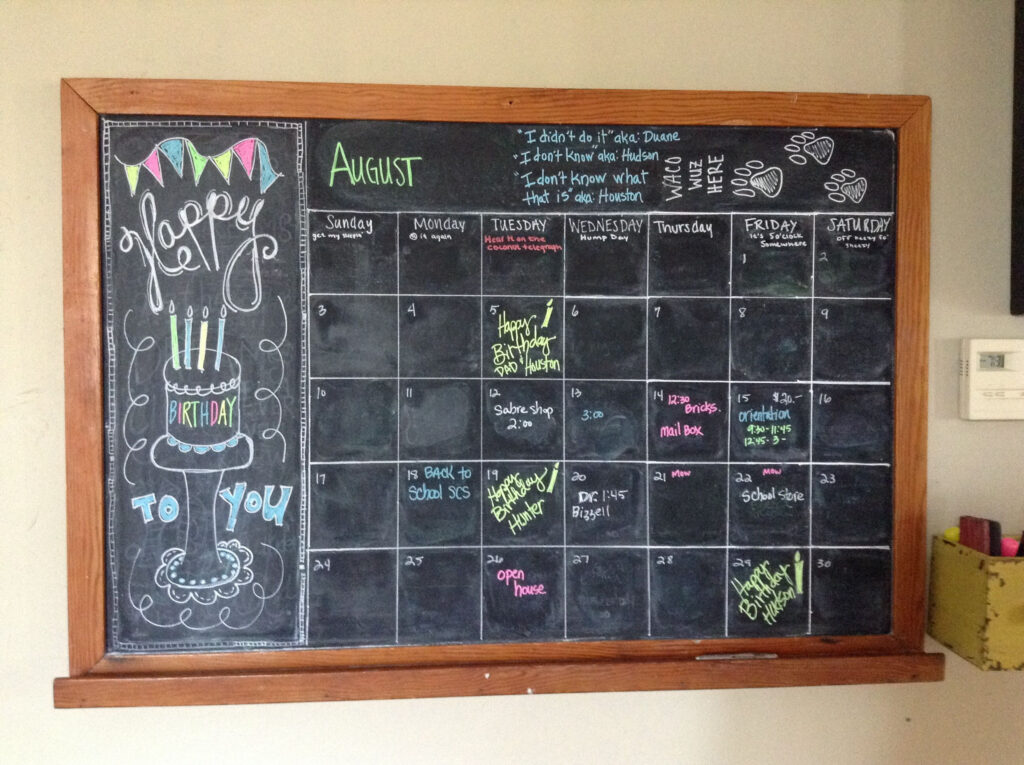 Happy
BIRTHDAY
TO YOU
AUGUST
"I didn't do it" aka: Duane
"I don't know" aka: Hudson
"I don't know what
that is" aka: Houston
WACO
WUZ
HERE
Sunday
get my
Monday
@ it again
TUESDAY
Hear it on the
coconut telegraph
WEDNESDAY
Hump Day
Thursday
FRIDAY
it's 5 o'clock
Somewhere
SATURDAY
1
2
3
4
5
Happy
Birthday
DAD & Houston
6
7
8
9
10
11
12
Sabre Shop
2:00
13
3:00
14 12:30
Bricks.
Mail Box
15 $20.-
orientation
9:30-11:45
12:45-3-
16
17
18 BACK to
School SCS
19
Happy
Birthday
Hunter
20
Dr. 1:45
Bizzell
21 Mow
22 Mow
School Store
23
24
25
26
open
house
27
28
29
Happy
Birthday
Hudson!
30